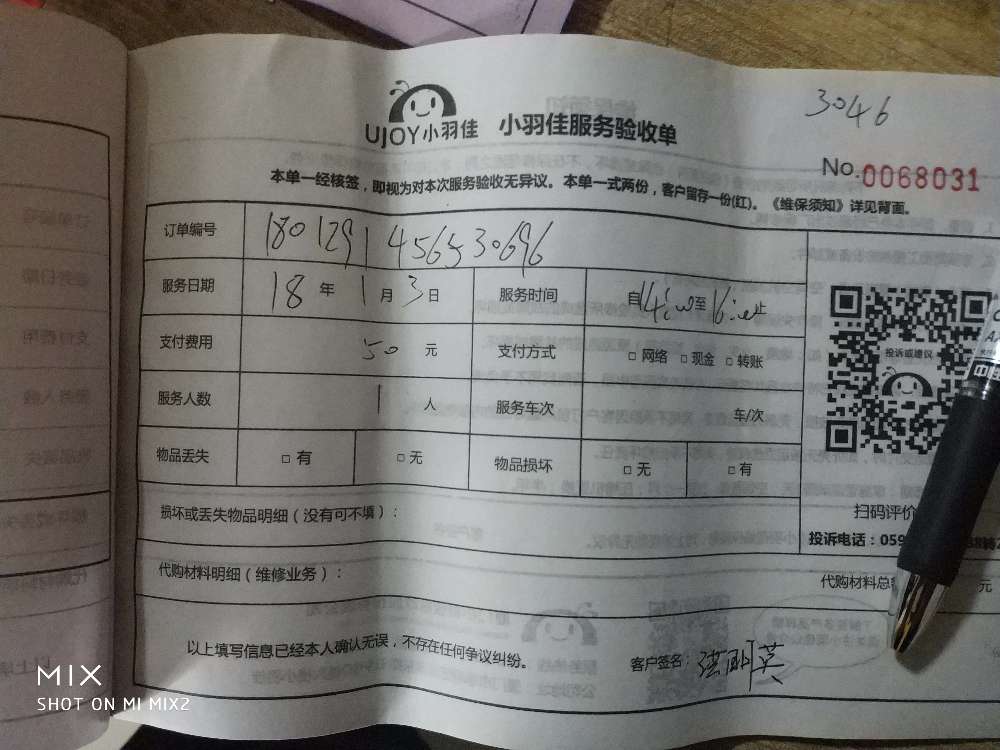 3046
UJOY小羽佳 小羽佳服务验收单
No.0068031
本单一经核签，即视为对本次服务验收无异议。本单一式两份，客户留存一份(红)。《维保须知》详见背面。
订单编号 1801291456530696
服务日期 18 年 1 月 3 日 服务时间 自14:00至16:00止
支付费用 50 元 支付方式 □ 网络 □ 现金 □ 转账
服务人数 1 人 服务车次 车/次
物品丢失 □ 有 □ 无 物品损坏 □ 无 □ 有
投诉或建议
扫码评价
损坏或丢失物品明细（没有可不填）：
投诉电话：059
代购材料明细（维修业务）：
代购材料总 元
以上填写信息已经本人确认无误，不存在任何争议纠纷。
客户签名：张明英
MIX
SHOT ON MI MIX2